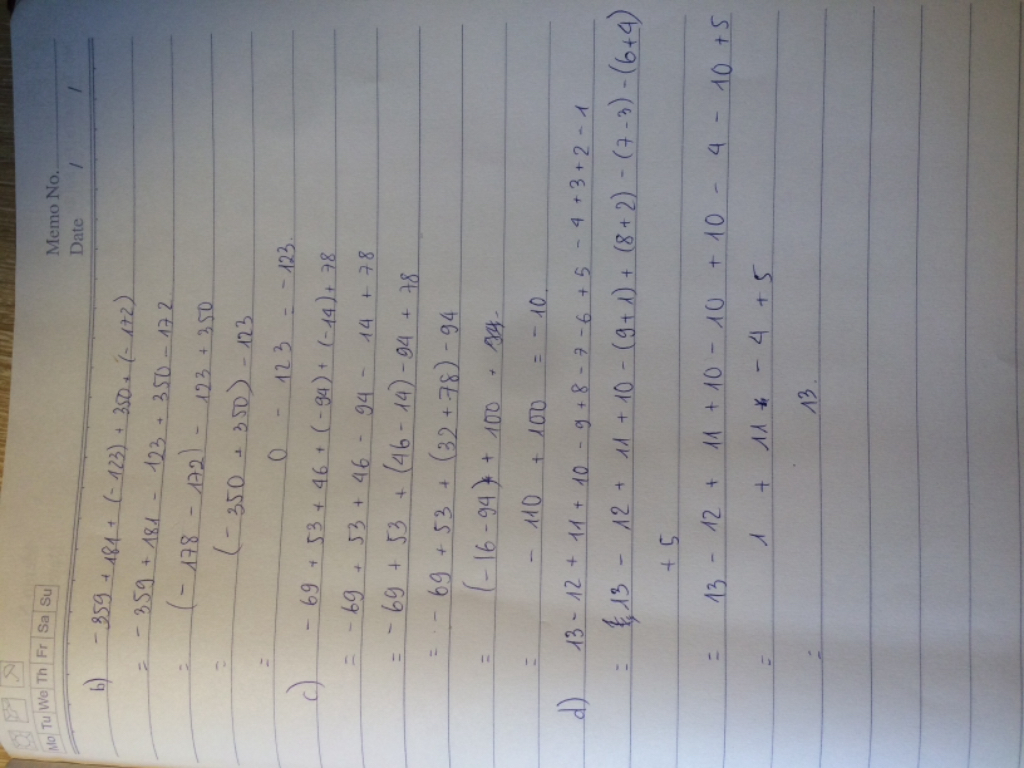 Mo Tu We Th Fr Sa Su
Memo No.
Date / /
b) - 359 + 181 + (-123) + 350 + (-172)
= - 359 + 181 - 123 + 350 - 172
= (-178 - 172) - 123 + 350
= (-350 + 350) - 123
= 0 - 123 = -123.
c) - 69 + 53 + 46 + (-94) + (-14) + 78
= - 69 + 53 + 46 - 94 - 14 + 78
= - 69 + 53 + (46 - 14) - 94 + 78
= - 69 + 53 + (32 + 78) - 94
= (-16 - 94) + 100
= - 110 + 100 = -10.
d) 13 - 12 + 11 + 10 - 9 + 8 - 7 - 6 + 5 - 4 + 3 + 2 - 1
= 13 - 12 + 11 + 10 - (9 + 1) + (8 + 2) - (7 - 3) - (6 + 4)
+ 5
= 13 - 12 + 11 + 10 - 10 + 10 - 4 - 10 + 5
= 1 + 11 - 4 + 5
= 13.